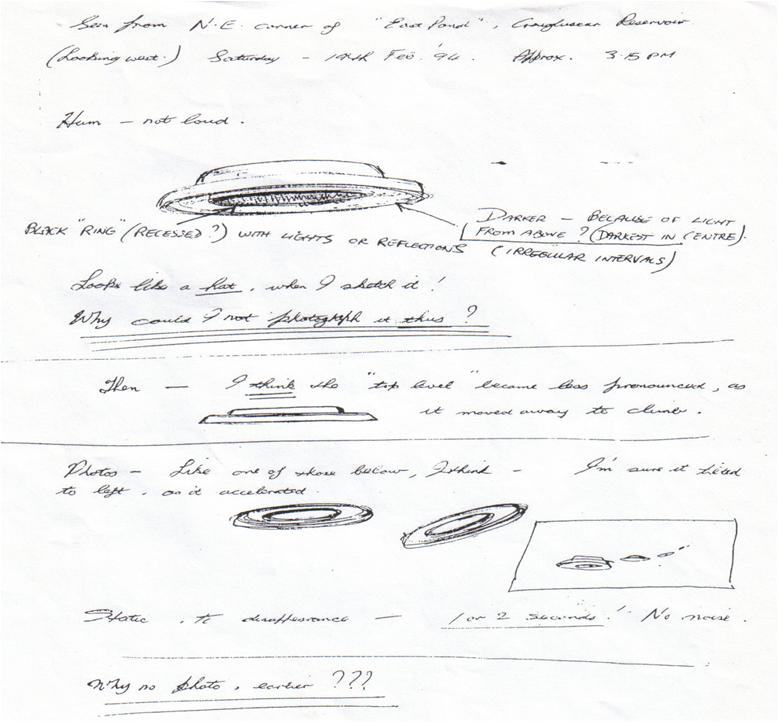 Seen from N.E. corner of "East Pond", Craigluscar Reservoir
(Looking west.) Saturday - 19th Feb. '94. Approx. 3.15 PM
Hum - not loud.
BLACK "RING" (RECESSED?) WITH LIGHTS OR REFLECTIONS
DARKER - BECAUSE OF LIGHT
FROM ABOVE? (DARKEST IN CENTRE).
(IRREGULAR INTERVALS)
Looks like a hat, when I sketch it!
Why could I not photograph it thus?
Then - I think the "top level" became less pronounced, as
it moved away to climb.
Photos - Like one of those below, I think - I'm sure it tilted
to left, as it accelerated.
Static, to disappearance - 1 or 2 seconds! No noise.
Why no photo, earlier ???